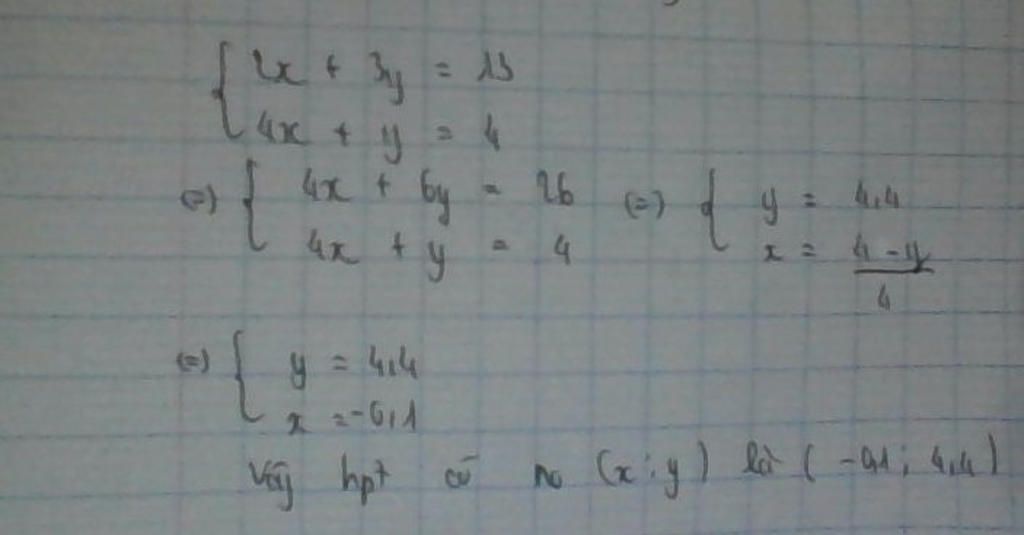 { 2x + 3y = 13
4x + y = 4
(=) { 4x + 6y = 26 (=) { y = 4,4
4x + y = 4 x = 4 - y / 4
(=) { y = 4,4
x = -0,1
Vậy hpt có no (x ; y) là ( -0,1 ; 4,4 )